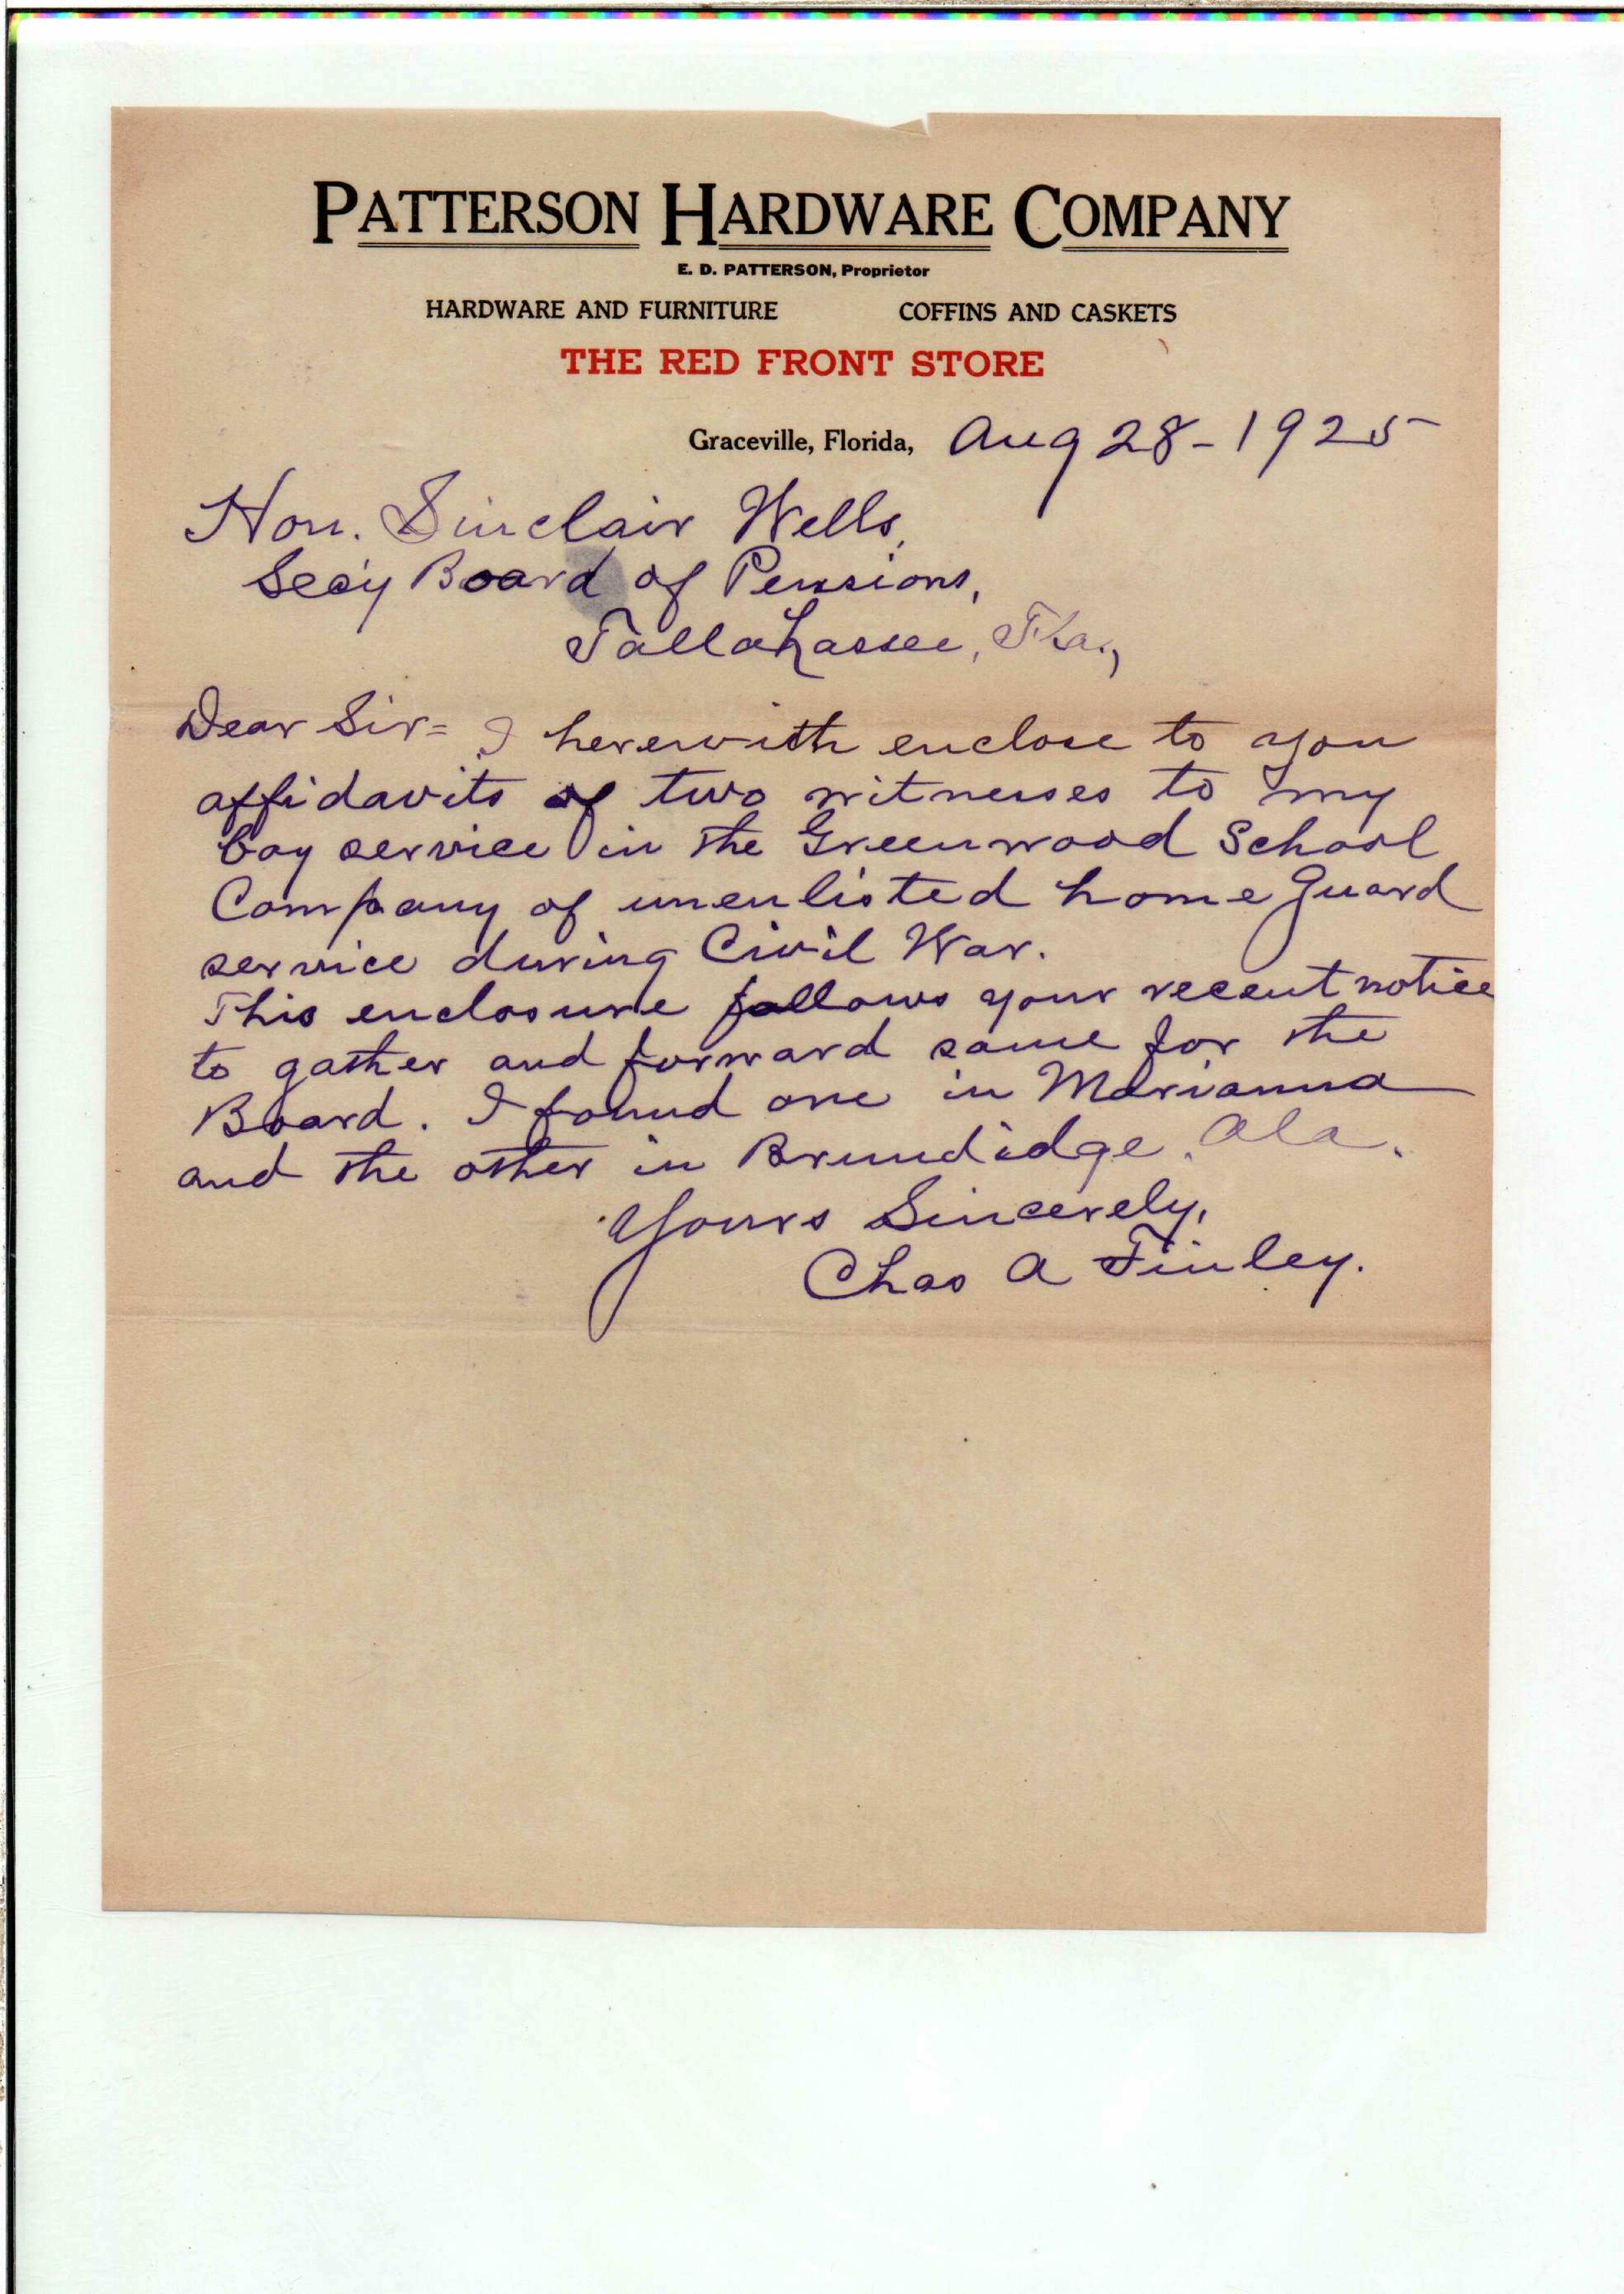 PATTERSON HARDWARE COMPANY
E. D. PATTERSON, Proprietor
HARDWARE AND FURNITURE COFFINS AND CASKETS
THE RED FRONT STORE
Graceville, Florida, Aug 28-1925
Hon. Sinclair Wells,
Secy Board of Pensions,
Tallahassee, Fla.,
Dear Sir= I herewith enclose to you
affidavits of two witnesses to my
boy service in the Greenwood School
Company of unenlisted home guard
service during Civil War.
This enclosure follows your recent notice
to gather and forward same for the
Board. I found one in Marianna
and the other in Brundidge, Ala.
Yours Sincerely,
Chas A Finley.